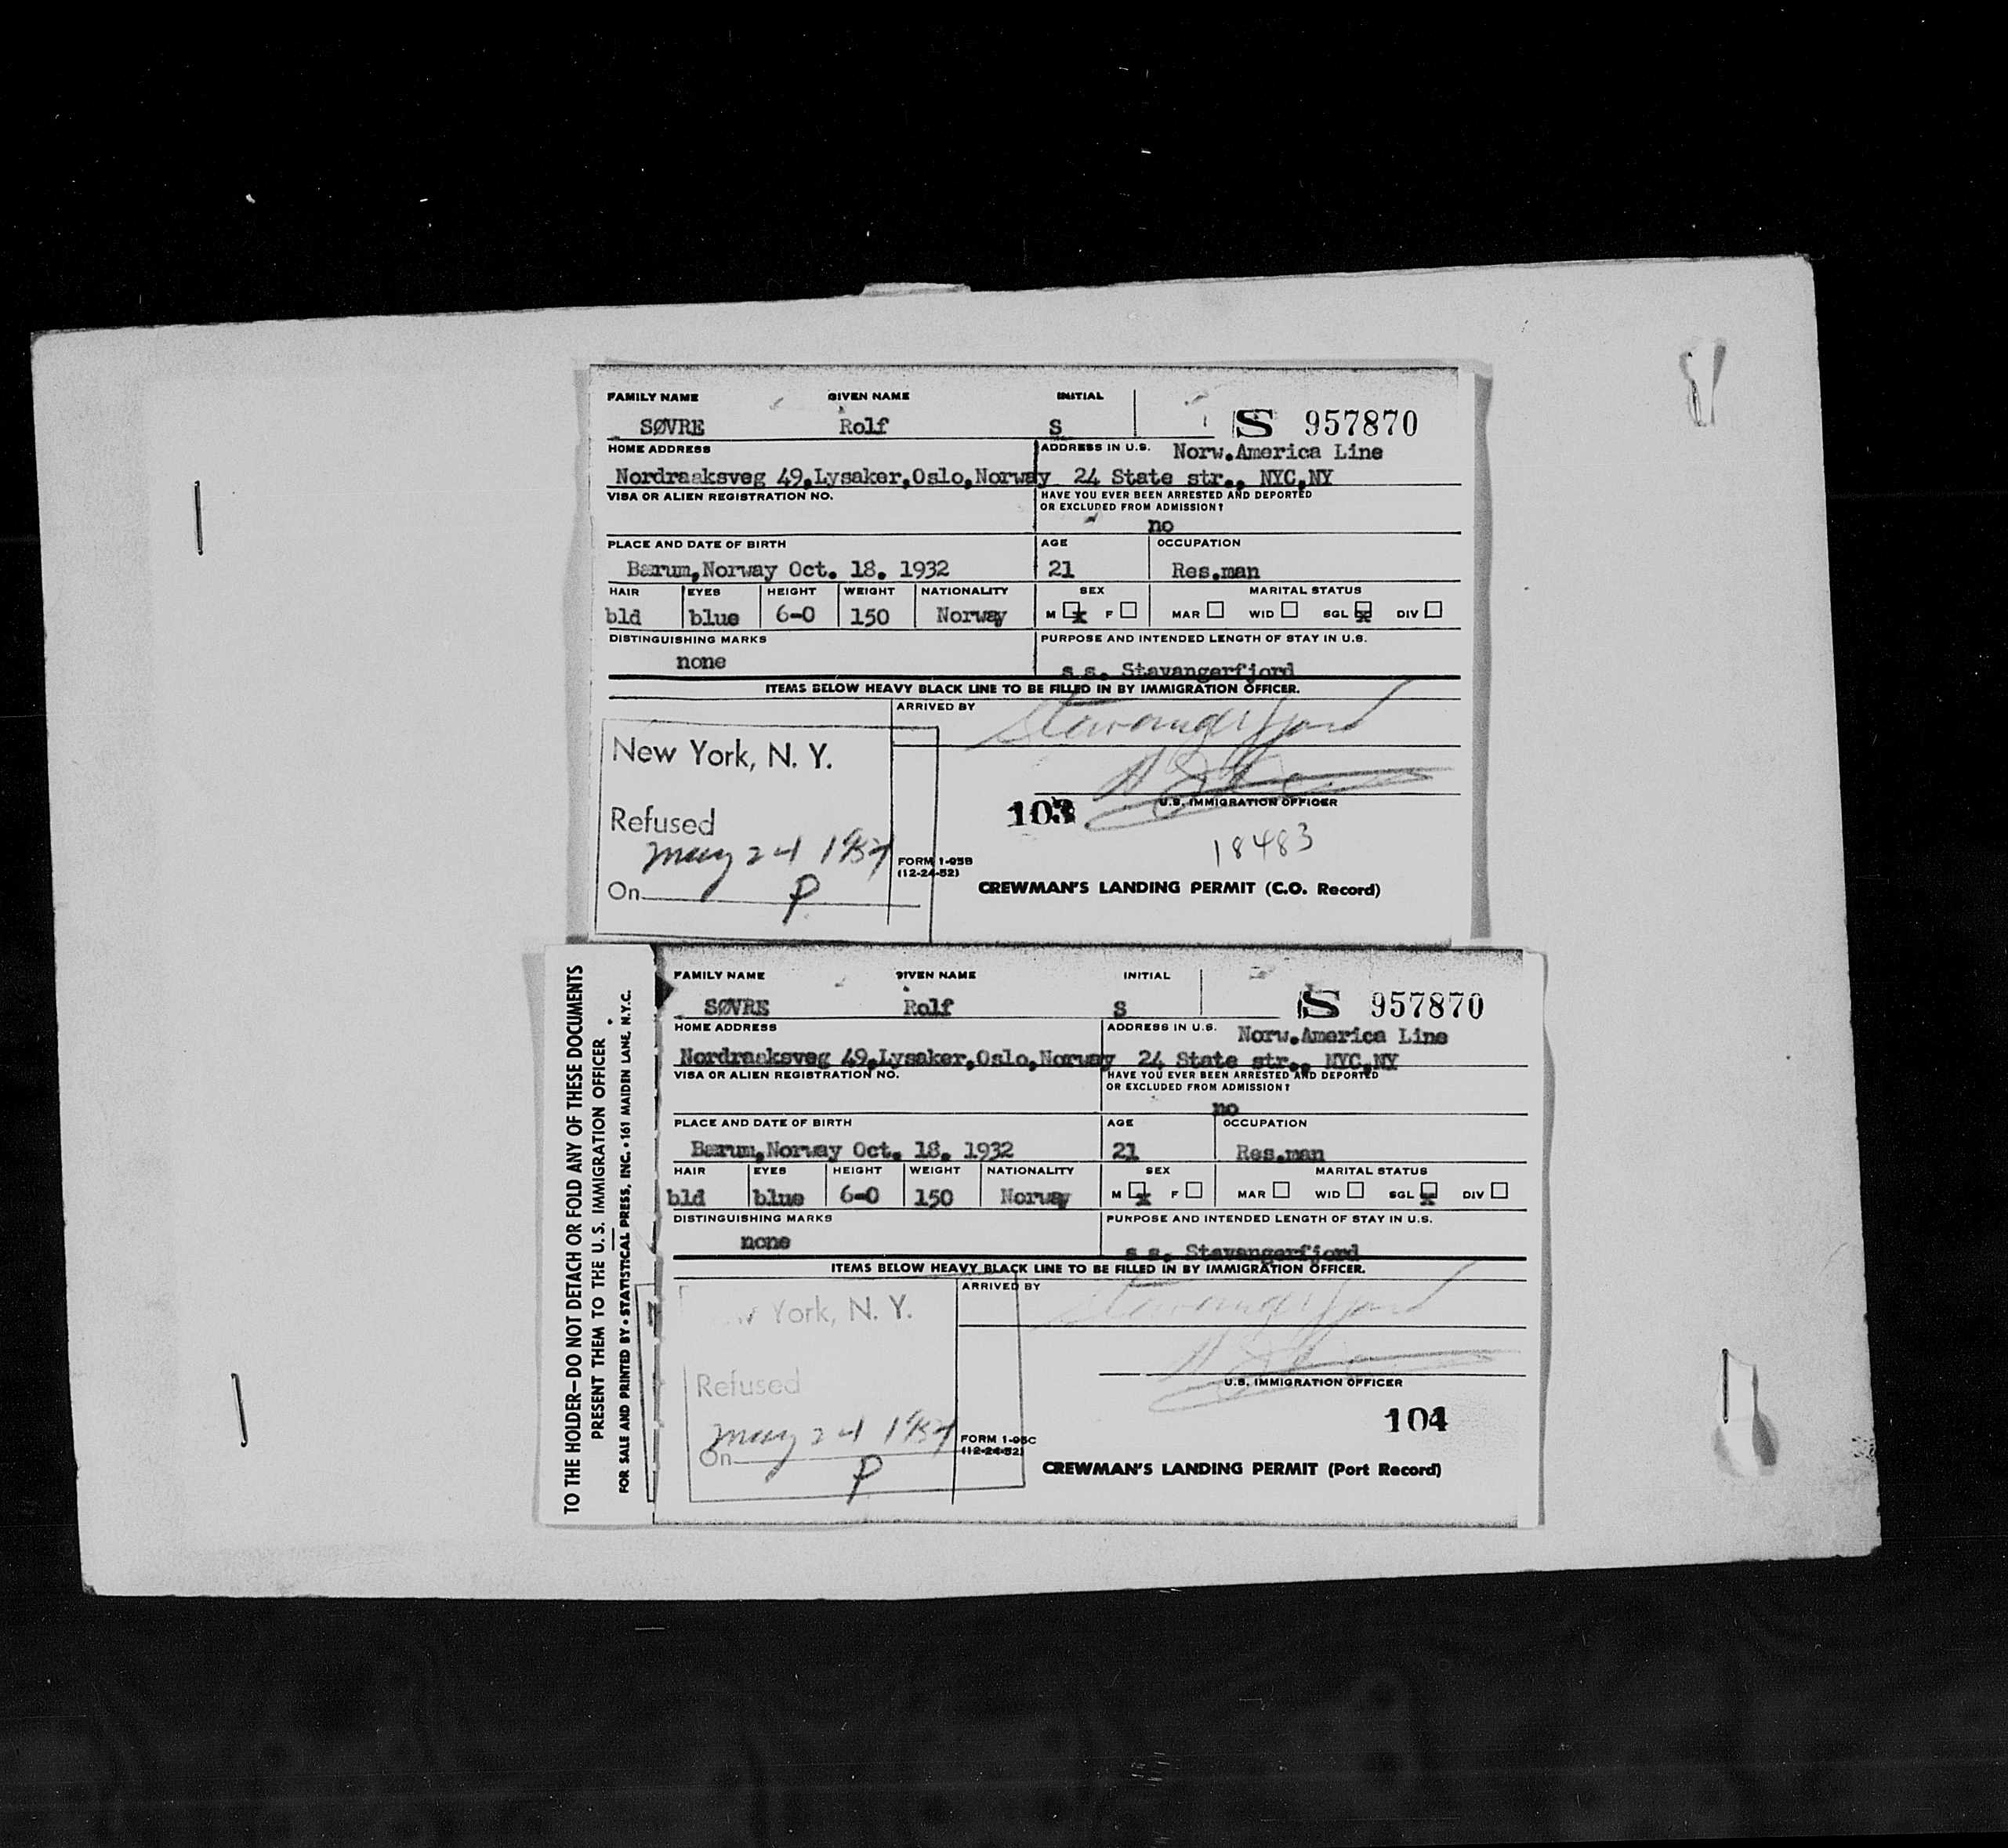 FAMILY NAME GIVEN NAME INITIAL
SØVRE Rolf S S 957870
HOME ADDRESS ADDRESS IN U.S. Norw.America Line
Nordraaksveg 49,Lysaker,Oslo,Norway 24 State str., NYC,NY
VISA OR ALIEN REGISTRATION NO. HAVE YOU EVER BEEN ARRESTED AND DEPORTED
OR EXCLUDED FROM ADMISSION?
no
PLACE AND DATE OF BIRTH AGE OCCUPATION
Bærum,Norway Oct. 18. 1932 21 Res.man
HAIR EYES HEIGHT WEIGHT NATIONALITY SEX MARITAL STATUS
bld blue 6-0 150 Norway M x F MAR WID SGL x DIV
DISTINGUISHING MARKS PURPOSE AND INTENDED LENGTH OF STAY IN U.S.
none s.s. Stavangerfjord
ITEMS BELOW HEAVY BLACK LINE TO BE FILLED IN BY IMMIGRATION OFFICER.
ARRIVED BY Stavangerfjord
New York, N. Y.
103 U.S. IMMIGRATION OFFICER
Refused
May 24 1954 18483
FORM 1-95B
(12-24-52)
On P CREWMAN'S LANDING PERMIT (C.O. Record)
TO THE HOLDER—DO NOT DETACH OR FOLD ANY OF THESE DOCUMENTS
PRESENT THEM TO THE U. S. IMMIGRATION OFFICER
FOR SALE AND PRINTED BY • STATISTICAL PRESS, INC. • 161 MAIDEN LANE, N.Y.C.
FAMILY NAME GIVEN NAME INITIAL
SØVRE Rolf S S 957870
HOME ADDRESS ADDRESS IN U.S. Norw.America Line
Nordraaksveg 49,Lysaker,Oslo,Norway 24 State str., NYC,NY
VISA OR ALIEN REGISTRATION NO. HAVE YOU EVER BEEN ARRESTED AND DEPORTED
OR EXCLUDED FROM ADMISSION?
no
PLACE AND DATE OF BIRTH AGE OCCUPATION
Bærum,Norway Oct. 18. 1932 21 Res.man
HAIR EYES HEIGHT WEIGHT NATIONALITY SEX MARITAL STATUS
bld blue 6-0 150 Norway M x F MAR WID SGL x DIV
DISTINGUISHING MARKS PURPOSE AND INTENDED LENGTH OF STAY IN U.S.
none s.s. Stavangerfjord
ITEMS BELOW HEAVY BLACK LINE TO BE FILLED IN BY IMMIGRATION OFFICER.
ARRIVED BY Stavangerfjord
York, N. Y.
U.S. IMMIGRATION OFFICER
Refused
104
May 24 1954
FORM 1-95C
(12-24-52)
On P CREWMAN'S LANDING PERMIT (Port Record)